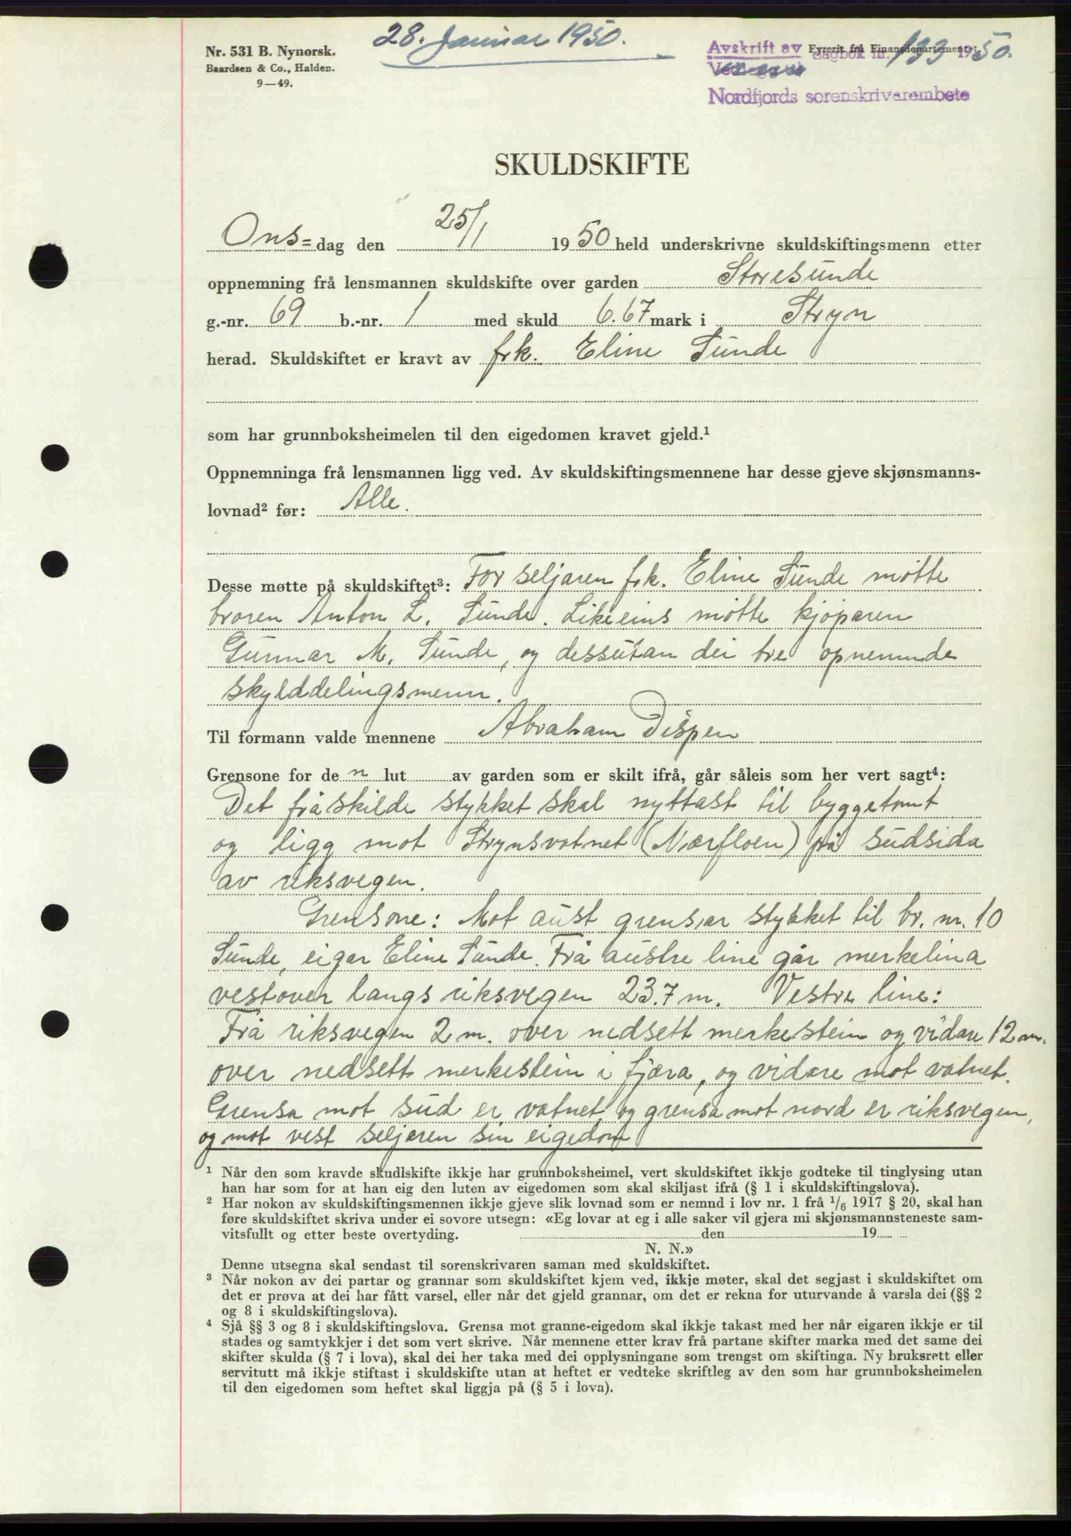 Nr. 531 B. Nynorsk.
Baardsen & Co., Halden.
9—49.
28. Januar 1950.
Avskrift av Fyrerit frå Finansdepartementet.
dagbok nr. 133 1950.
Nordfjords sorenskrivarembete
SKULDSKIFTE
Ons=dag den 25/1 1950 held underskrivne skuldskiftingsmenn etter
oppnemning frå lensmannen skuldskifte over garden Storesunde
g.-nr. 69 b.-nr. 1 med skuld 6.67 mark i Stryn
herad. Skuldskiftet er kravt av frk. Eline Sunde
som har grunnboksheimelen til den eigedomen kravet gjeld.¹
Oppnemninga frå lensmannen ligg ved. Av skuldskiftingsmennene har desse gjeve skjønsmanns-
lovnad² før: Alle.
Desse møtte på skuldskiftet³: For seljaren frk. Eline Sunde møtte
broren Anton L. Sunde. Likeeins møtte kjøparen
Gunnar M. Sunde, og dessutan dei tre opnemnde
skylddelingsmenn.
Til formann valde mennene Abraham Dispen
Grensone for de n lut av garden som er skilt ifrå, går såleis som her vert sagt⁴:
Det fråskilde stykket skal nyttast til byggetomt
og ligg mot Strynsvatnet (Nærfloen) på sudsida
av riksvegen.
Grensone: Mot aust grensar stykket til br. nr. 10
Sunde, eigar Eline Sunde. Frå austre line går merkelina
vestover langs riksvegen 23.7 m. Vestre line:
Frå riksvegen 2 m. over nedsett merkestein og vidare 12 m.
over nedsett merkestein i fjæra, og vidare mot vatnet.
Grensa mot sud er vatnet og grensa mot nord er riksvegen,
og mot vest seljaren sin eigedom
¹ Når den som kravde skudlskifte ikkje har grunnboksheimel, vert skuldskiftet ikkje godteke til tinglysing utan
han har som for at han eig den luten av eigedomen som skal skiljast ifrå (§ 1 i skuldskiftingslova).
² Har nokon av skuldskiftingsmennen ikkje gjeve slik lovnad som er nemnd i lov nr. 1 frå 1/6 1917 § 20, skal han
føre skuldskiftet skriva under ei sovore utsegn: «Eg lovar at eg i alle saker vil gjera mi skjønsmannsteneste sam-
vitsfullt og etter beste overtyding. den 19
N. N.»
Denne utsegna skal sendast til sorenskrivaren saman med skuldskiftet.
³ Når nokon av dei partar og grannar som skuldskiftet kjem ved, ikkje møter, skal det segjast i skuldskiftet om
det er prøva at dei har fått varsel, eller når det gjeld grannar, om det er rekna for uturvande å varsla dei (§§ 2
og 8 i skuldskiftingslova).
⁴ Sjå §§ 3 og 8 i skuldskiftingslova. Grensa mot granne-eigedom skal ikkje takast med her når eigaren ikkje er til
stades og samtykkjer i det som vert skrive. Når mennene etter krav frå partane skifter marka med det same dei
skifter skulda (§ 7 i lova), skal dei her taka med dei opplysningane som trengst om skiftinga. Ny bruksrett eller
servitutt må ikkje stiftast i skuldskifte utan at heftet er vedteke skriftleg av den som har grunnboksheimelen
til den eigedomen som heftet skal liggja på (§ 5 i lova).